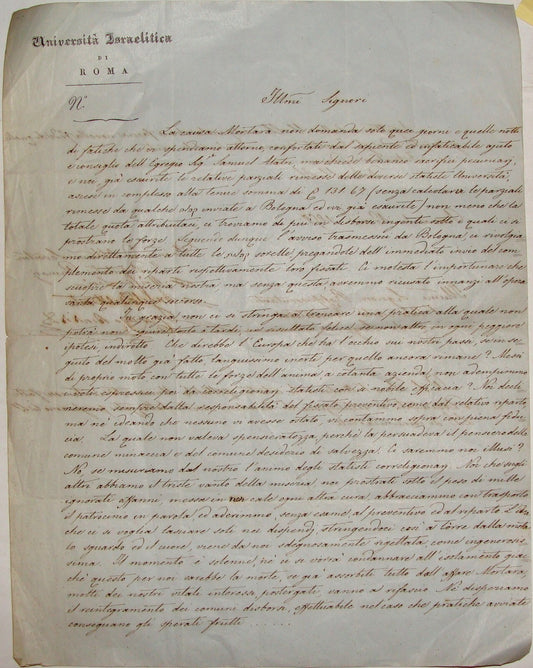 Università Israelitica
DI
ROMA
N.º
Illmi Signori
La causa Mortara non domanda solo quei giorni e quelle notti
di fatiche che vi spendiamo attorno, confortati dal sapiente ed infaticabile ajuto
e consiglio dell' Egregio Sigr Samuel Alatri, ma chiede binanco sacrifici pecuniarj,
e noi già esaurite le relative parziali rimesse delle diverse statiste Università,
ascese in complesso alla tenue somma di 131. 67 (senza calcolare le parziali
rimesse da qualche inviate a Bologna ed ivi già esaurite) non meno che la
totale quota attribuitaci, ci troviamo di più in disborsi ingenti sotto a quali ci si
prostrano le forze. Seguendo dunque l' avviso trasmessoci da Bologna ci rivolgia-
mo direttamente a tutte le sorelle pregandole dell' immediato invio del com-
plemento dei riparti respettivamente loro fissati. Ci molesta l' importunare che
scuopre la miseria nostra ma senza questa avremmo ricusato innanzi all' opera
santa qualunque soccorso.
In grazia, non ci si stringa a troncare una pratica alla quale non
potrà non presto o tardi un risultato felice, se non altro in ogni peggiore
ipotesi indiretto. Che direbbe l' Europa che ha l' occhio sui nostri passi, se in se-
guito del molto già fatto, languissimo inerti per quello ancora rimane? Messici
di proprio moto con tutte le forze dell' anima a cotanta azienda, non adempimmo
i voti espressici poi da correligionarj statisti con sì nobile efficacia? Noi decli-
neremo sempre dalla responsabilità del fissato preventivo, come dal relativo riparto,
ma nè ideando che nessuno vi avesse ostato, vi contammo sopra con piena fidu-
cia. La quale non valeva spensieratezza, perchè la persuadeva il pensiero della
comune minaccia e del comune desiderio di salvezza. Ce saremmo noi illusi?
No se misuriamo dal nostro l' animo degli statisti correligionarj. Noi che sugli
altri abbiamo il triste vanto della miseria, noi prostrati sotto il peso di mille
ignorati affanni, messa in non cale ogni altra cura, abbracciammo con trasporto
il patrocinio in parola ed aderimmo senza esame al preventivo ed al riparto. L' idea
che ci si voglia lasciare soli nei dispendj, stringendoci così a torre dalla meta
lo sguardo ed il cuore, viene da noi sdegnosamente rigettata come ingenerosis-
sima. Il momento è solenne, nè ci si vorrà condannare all' isolamento giac-
chè questo per noi sarebbe la morte, se già assorbiti tutto dall' affare Mortara,
molti dei nostri vitali interessi, postergati, vanno a rifascio. Nè disperiamo
il reintegramento dei comuni disborsi, effettuabile nel caso che pratiche avviate
conseguano gli sperati frutti . . . . . .